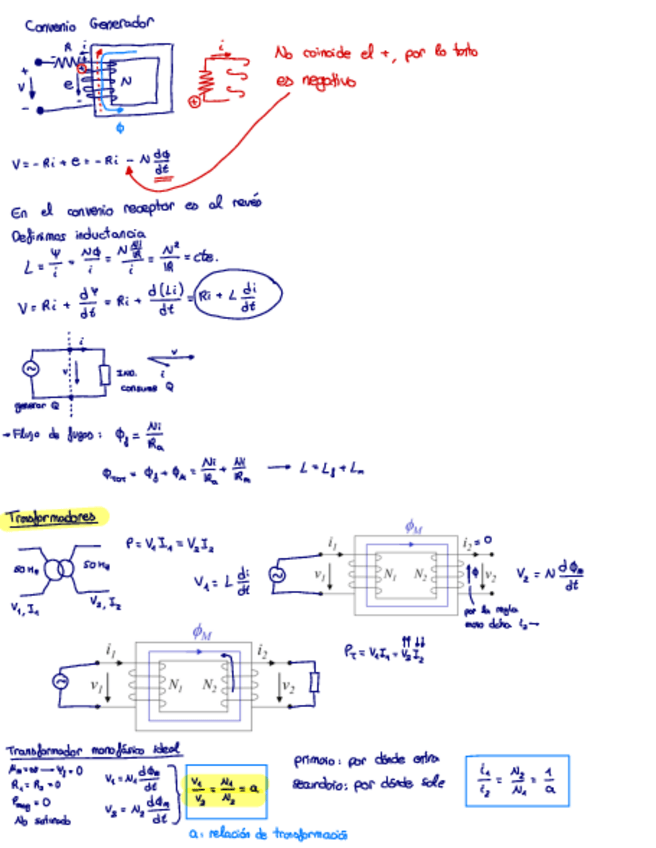 Convenio Generador
R i
+ V - e N
ϕ
i
No coincide el +, por lo tanto
es negativo
V = -Ri + e = -Ri - N dϕ/dt
En el convenio receptor es al revés
Definimos inductancia
L = Ψ/i = Nϕ/i = N Ni/R / i = N²/R = cte.
V = Ri + dΨ/dt = Ri + d(Li)/dt = Ri + L di/dt
i
v
IND.
consume Q
v
i
generar Q
→ Flujo de fugas: ϕ_f = Ni/R_a
ϕ_TOT = ϕ_f + ϕ_M = Ni/R_a + Ni/R_m → L = L_f + L_m
Transformadores
P = V₁I₁ = V₂I₂
50 Hz 50 Hz
V₁, I₁ V₂, I₂
V₁ = L di/dt
ϕ_M
i₁ i₂ = 0
v₁ N₁ N₂ ϕ v₂
V₂ = N dϕ_m/dt
por la regla
mano dcha i₂ →
P_T = V₁I₁ = V₂I₂
ϕ_M
i₁ i₂
v₁ N₁ N₂ v₂
Transformador monofásico ideal
R₁ = R₂ = 0
= 0
No saturado
V₁ = N₁ dϕ_m/dt
V₂ = N₂ dϕ_m/dt
V₁/V₂ = N₁/N₂ = a
a: relación de transformación
primario: por dónde entra
secundario: por dónde sale
i₁/i₂ = N₂/N₁ = 1/a